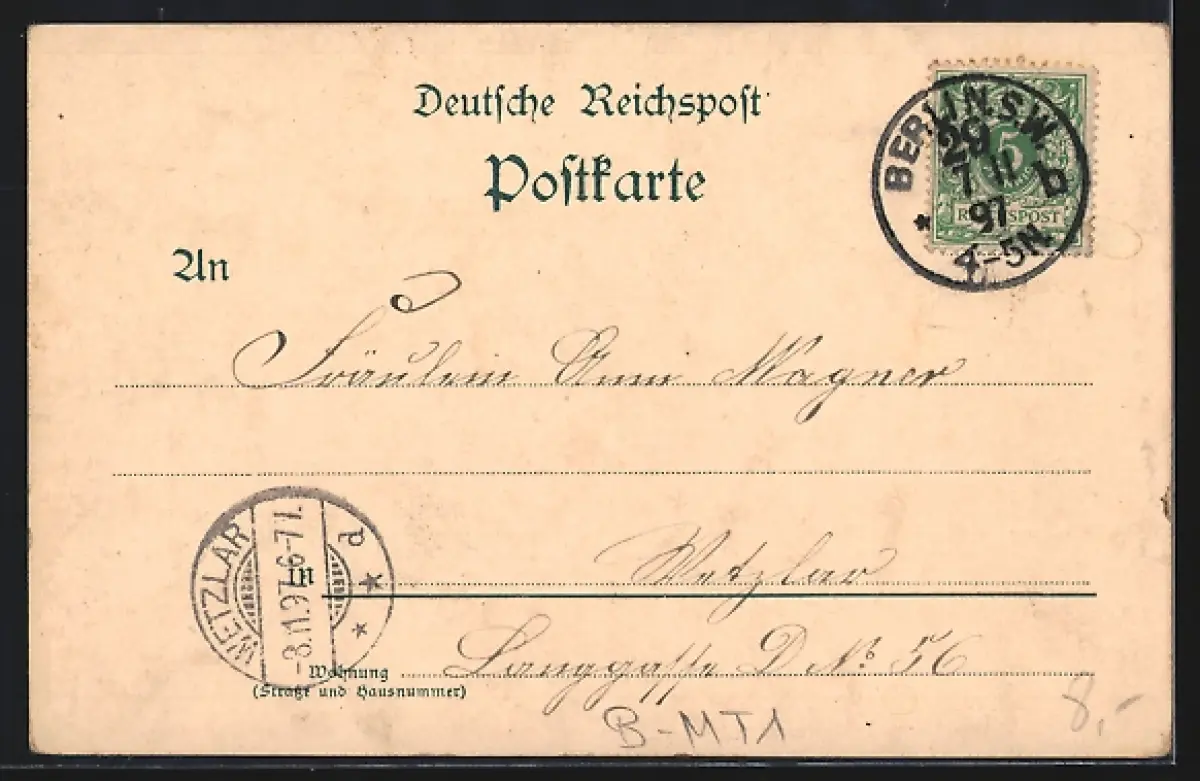 Deutsche Reichspost
Postkarte
BERLIN. S.W.
29
7 11 b
97
4-5N.
5
REICHSPOST
An
Fräulein Anni Wagner
WETZLAR
-8.11.97.6-7 V.
d
in
Wetzlar
Wohnung
(Straße und Hausnummer)
Langgasse D No. 56
B-MT1
8,-